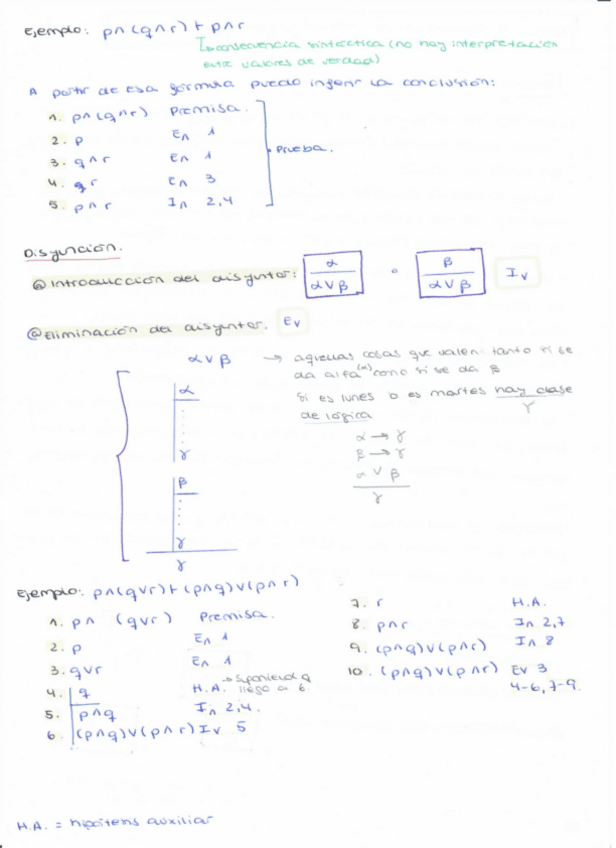 Ejemplo: p∧(q∧r) ⊢ p∧r
Inconsecuencia sintáctica (no hay interpretación
entre valores de verdad)
A partir de esa fórmula puedo inferir la conclusión:
1. p∧(q∧r) Premisa.
2. p E∧ 1
3. q∧r E∧ 1
Prueba.
4. r E∧ 3
5. p∧r I∧ 2,4
Disyunción.
@ Introducción del disyuntor: α / α∨β o β / α∨β I∨
@ Eliminación del disyuntor. E∨
α∨β → aquellas cosas que valen tanto si se
da alfa(α) como si se da β
Si es lunes o es martes hay clase
de lógica γ
α
γ
β
γ
γ
α → γ
β → γ
α ∨ β
γ
Ejemplo: p∧(q∨r) ⊢ (p∧q)∨(p∧r)
1. p∧ (q∨r) Premisa.
2. p E∧ 1
3. q∨r E∧ 1
4. q H.A. → Suponiendo q llego a 6
5. p∧q I∧ 2,4.
6. (p∧q)∨(p∧r) I∨ 5
7. r H.A.
8. p∧r I∧ 2,7
9. (p∧q)∨(p∧r) I∧ 8
10. (p∧q)∨(p∧r) E∨ 3
4-6, 7-9.
H.A. = hipótesis auxiliar